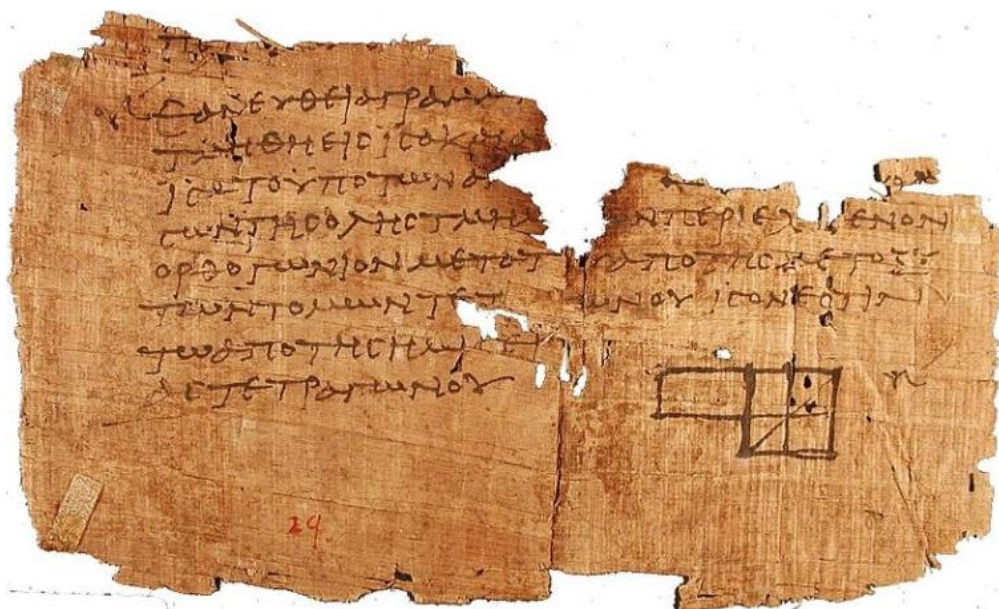 ΕΑΝΕΥΘΕΙΑΓΡΑΜΜ
ΤΜΗΘΗΕΙϹΙϹΑΚΑΙΑ
ΙϹΑΤΟΥΠΟΤΩΝΑ
ϹΩΝΤΗϹΟΛΗϹΤΜΗΜ ΩΝΠΕΡΙΕΧ ΜΕΝΟΝ
ΟΡΘΟΓΩΝΙΟΝΜΕΤΑΤ ΑΠΟΤΗϹΜΕΤΟΞΥ
ΤΩΝΤΟΜΩΝΤΕΤ ΩΝΟΥΙϹΟΝΕϹΤΙΝ
ΤΩΑΠΟΤΗϹΗΜΙ ΕΙ
ΑϹΤΕΤΡΑΓΩΝΟΥ
29